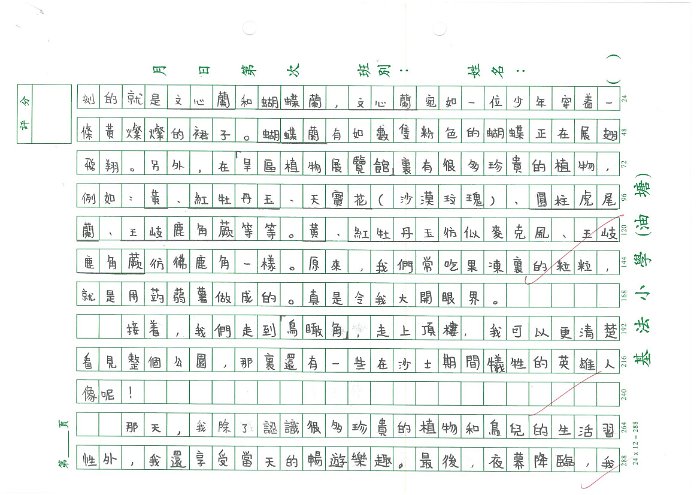 月 日 第 次 班別： 姓名： （ ）
評分
刻的就是文心蘭和蝴蝶蘭，文心蘭宛如一位少年穿着一
24
條黃燦燦的裙子。蝴蝶蘭有如數隻粉色的蝴蝶正在展翅
48
飛翔。另外，在「旱區植物展覽館」裏有很多珍貴的植物，
72
例如：黃、紅牡丹玉、天寶花（沙漠玫瑰）、圓柱虎尾
96
蘭、王岐鹿角蕨等等。黃、紅牡丹玉仿似麥克風、王岐
120
鹿角蕨仿佛鹿角一樣。原來，我們常吃果凍裏的粒粒，
144
就是用蒟蒻薯做成的。真是令我大開眼界。
168
接着，我們走到「鳥瞰角」，走上頂樓，我可以更清楚
192
看見整個公園，那裏還有一些在沙士期間犧牲的英雄人
216
像呢！
240
那天，我除了認識很多珍貴的植物和鳥兒的生活習
264
性外，我還享受當天的暢遊樂趣。最後，夜幕降臨，我
288
第 頁
24 x 12 = 288
基法小學(油塘)